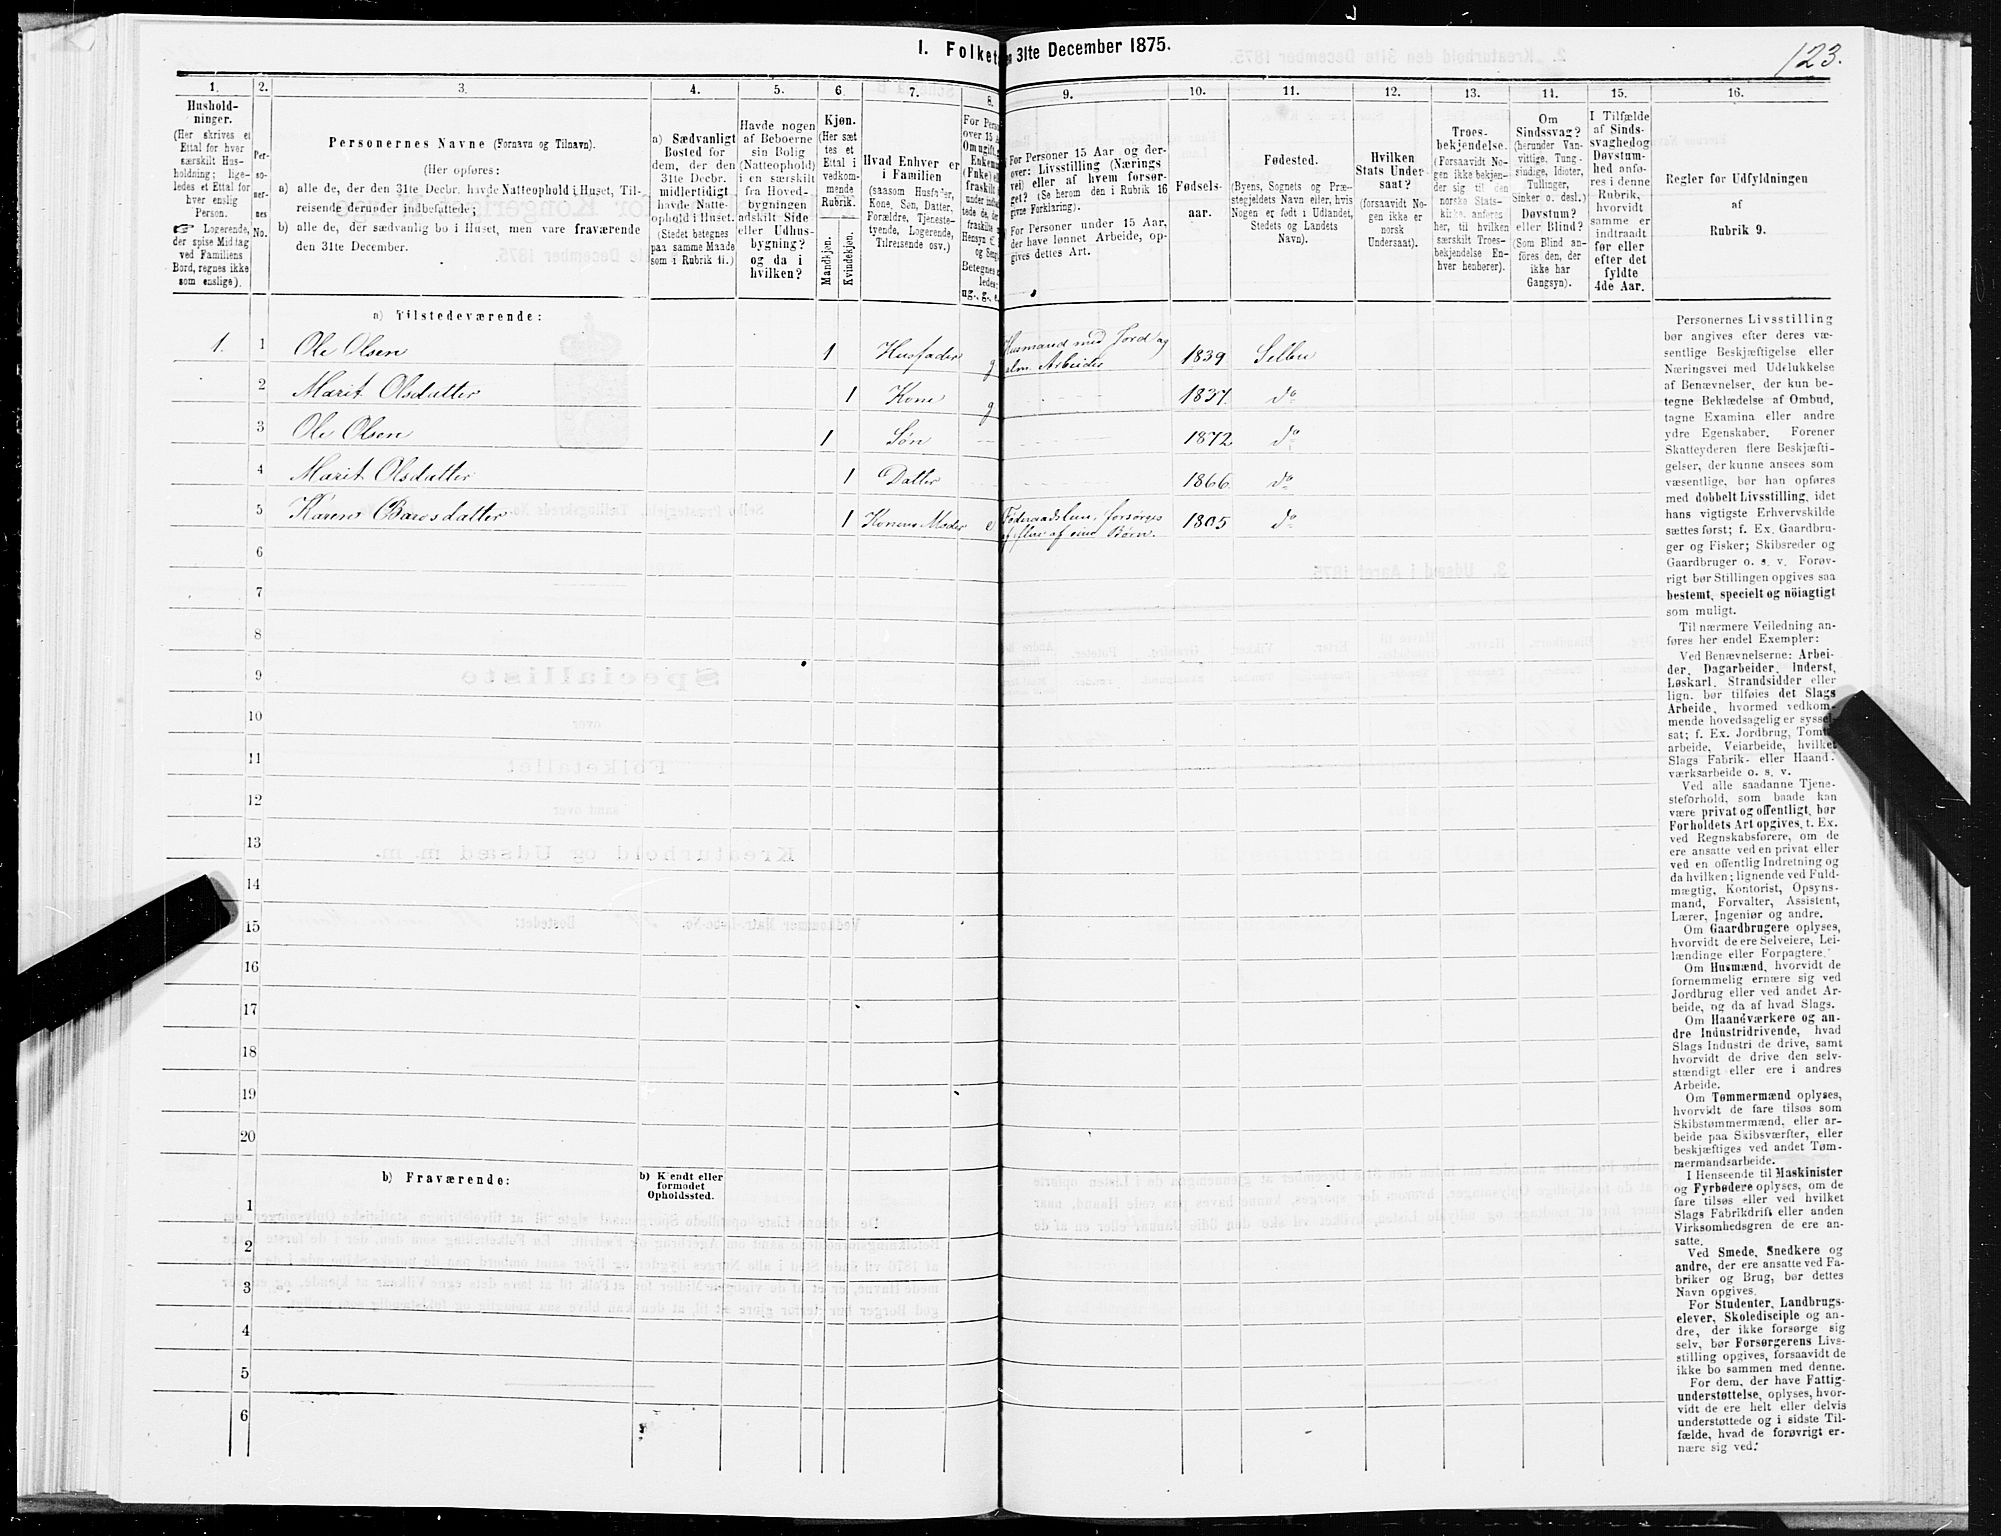 I. Folket
en 31te December 1875.
123.
1.
2.
3.
4.
5.
6
7.
8.
9.
10.
11.
12.
13.
14.
15.
16.
Hushold-
ninger.
(Her skrives et
Ettal for hver
særskilt Hus-
holdning; lige-
ledes et Ettal for
hver enslig
Person.
☞ Logerende,
der spise Middag
ved Familiens
Bord, regnes ikke
som enslige).
Per-
so-
ner-
nes
No.
Personernes Navne (Fornavn og Tilnavn).
(Her opføres:
a) alle de, der den 31te Decbr. havde Natteophold i Huset, Til-
reisende derunder indbefattede;
b) alle de, der sædvanlig bo i Huset, men vare fraværende
den 31te December.
a) Sædvanligt
Bosted for
dem, der den
31te Decbr.
midlertidigt
havde Natte-
ophold i Huset.
(Stedet betegnes
paa samme Maade
som i Rubrik 11.)
Havde nogen
af Beboerne
sin Bolig
(Natteophold)
i en særskilt
fra Hoved-
bygningen
adskilt Side
eller Udhus-
bygning?
og da i
hvilken?
Kjøn.
(Her sæt
tes et
Ettal i
vedkom-
mende
Rubrik.
Mandkjøn.
Kvindekjøn.
Hvad Enhver er
i Familien
(saasom Husfader,
Kone, Søn, Datter,
Forældre, Tjeneste-
tyende, Logerende,
Tilreisende osv.)
For Pers
over 15 A
Om ugift, g
Enkem
(Enke) el
fraskilt
under indbe
tede de, de
fraskilte
Hensyn t
og Seng
Betegnes
ledes:
ug-, g-, e
For Personer 15 Aar og der-
over: Livsstilling (Nærings
vei) eller af hvem forsør-
get? (Se herom den i Rubrik 16
givne Forklaring).
For Personer under 15 Aar,
der have lønnet Arbeide, op-
gives dettes Art.
Fødsels-
aar.
Fødested.
(Byens, Sognets og Præ-
stegjeldets Navn eller, hvis
Nogen er født i Udlandet,
Stedets og Landets
Navn).
Hvilken
Stats Under
saat?
(forsaavidt No-
gen ikke er
norsk
Undersaat).
Troes-
bekjendelse.
(Forsaavidt No-
gen ikke bekjen-
der sig til den
norske Stats-
kirke, anføres
her, til hvilken
særskilt Troes-
bekjendelse En-
hver henhører).
Om
Sindssvag?
(herunder Van-
vittige, Tung-
sindige, Idioter,
Tullinger,
Sinker o. desl.)
Døvstum?
eller Blind?
(Som Blind an-
føres den, der
ikke har
Gangsyn).
I Tilfælde
af Sinds-
svaghed og
Døvstum-
hed anfø-
res i denne
Rubrik,
hvorvidt
samme er
indtraadt
før eller
efter det
fyldte
4de Aar.
Regler for Udfyldningen
af
Rubrik 9.
a) Tilstedeværende:
1. 1 Ole Olsen 1 Husfader g Husmand med Jord og
alm. Arbeider 1839 Selbu
2 Marit Olsdatter 1 Kone g 1837 do
3 Ole Olsen 1 Søn 1872 do
4 Marit Olsdatter 1 Datter 1866 do
5 Karen Baresdatter 1 Konens Moder e Føderaadslem, forsørges
af sine Børn. 1805 do
6
7
8
9
10
11
12
13
14
15
16
17
18
19
20
b) Fraværende:
b) Kjendt eller
formodet
Opholdssted.
1
2
3
4
5
6
Personernes Livsstilling
bør angives efter deres væ-
sentlige Beskjæftigelse eller
Næringsvei med Udelukkelse
af Benævnelser, der kun be-
tegne Beklædelse af Ombud,
tagne Examina eller andre
ydre Egenskaber. Forener
Skatteyderen flere Beskjæfti-
gelser, der kunne ansees som
væsentlige, bør han opføres
med dobbelt Livsstilling, idet
hans vigtigste Erhvervskilde
sættes først; f. Ex. Gaardbru-
ger og Fisker; Skibsreder og
Gaardbruger o. s. v. Forøv-
rigt bør Stillingen opgives saa
bestemt, specielt og nöiagtigt
som muligt.
Til nærmere Veiledning an-
føres her endel Exempler:
Ved Benævnelserne: Arbei-
der, Dagarbeider, Inderst,
Løskarl, Strandsidder eller
lign. bør tilføies det Slags
Arbeide, hvormed vedkom-
mende hovedsagelig er syssel-
sat; f. Ex. Jordbrug, Tomte-
arbeide, Veiarbeide, hvilket
Slags Fabrik- eller Haand-
værksarbeide o. s. v.
Ved alle saadanne Tjene-
steforhold, som baade kan
være privat og offentligt, bør
Forholdets Art opgives, t. Ex.
ved Regnskabsførere, om de
ere ansatte ved en privat eller
ved en offentlig Indretning og
da hvilken; lignende ved Fuld-
mægtig, Kontorist, Opsyns-
mand, Forvalter, Assistent,
Lærer, Ingeniør og andre.
Om Gaardbrugere oplyses,
hvorvidt de ere Selveiere, Lei-
lændinge eller Forpagtere.
Om Husmænd, hvorvidt de
fornemmelig ernære sig ved
Jordbrug eller ved andet Ar-
beide, og da af hvad Slags.
Om Haandværkere og an-
dre Industridrivende, hvad
Slags Industri de drive, samt
hvorvidt de drive den selv-
stændigt eller ere i andres
Arbeide.
Om Tømmermænd oplyses,
hvorvidt de fare tilsøs som
Skibstømmermænd, eller ar-
beide paa Skibsværfter, eller
beskjæftiges ved andet Tøm-
mermandsarbeide.
I Henseende til Maskinister
og Fyrbødere oplyses, om de
fare tilsøs eller ved hvilket
Slags Fabrikdrift eller anden
Virksomhedsgren de ere an-
satte.
Ved Smede, Snedkere og
andre, der ere ansatte ved Fa-
briker og Brug, bør dettes
Navn opgives.
For Studenter, Landbrugs-
elever, Skoledisciple og an-
dre, der ikke forsørge sig
selv, bør Forsørgerens Livs-
stilling opgives, forsaavidt de
ikke bo sammen med denne.
For dem, der have Fattig-
understøttelse, oplyses, hvor-
vidt de ere helt eller delvis
understøttede og i sidste Til-
fælde, hvad de forøvrigt er-
nære sig ved.